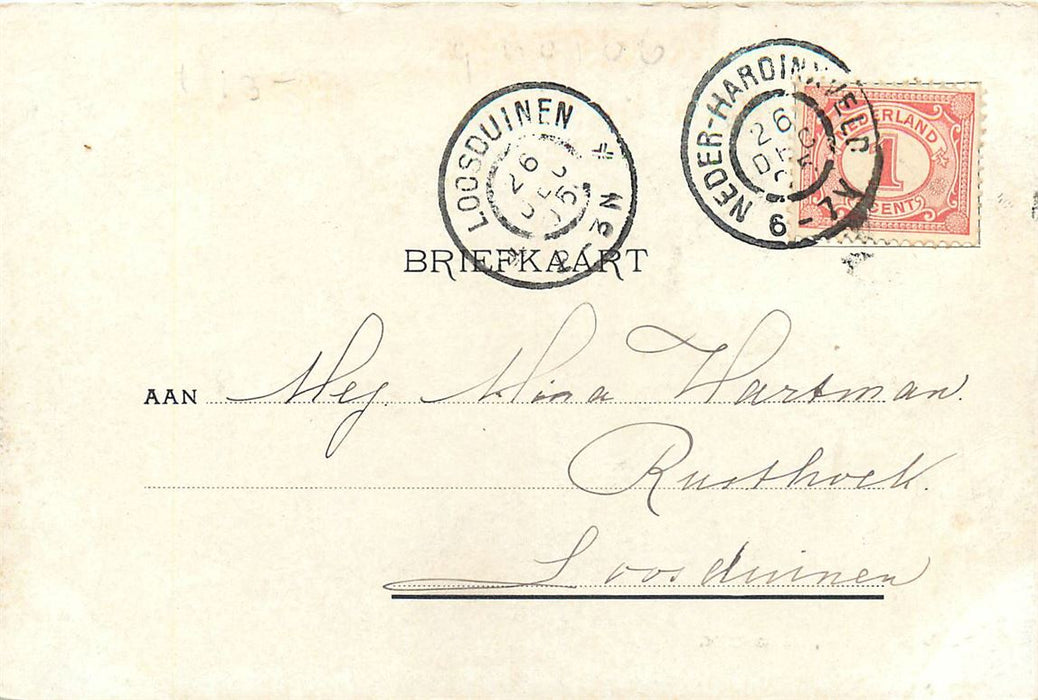 LOOSDUINEN
26 DEC 05
NEDER-HARDINXVELD
26 DEC
6-7
NEDERLAND
1
CENT
BRIEFKAART
AAN Mej. Mina Hartman.
Rusthoek.
Loosduinen